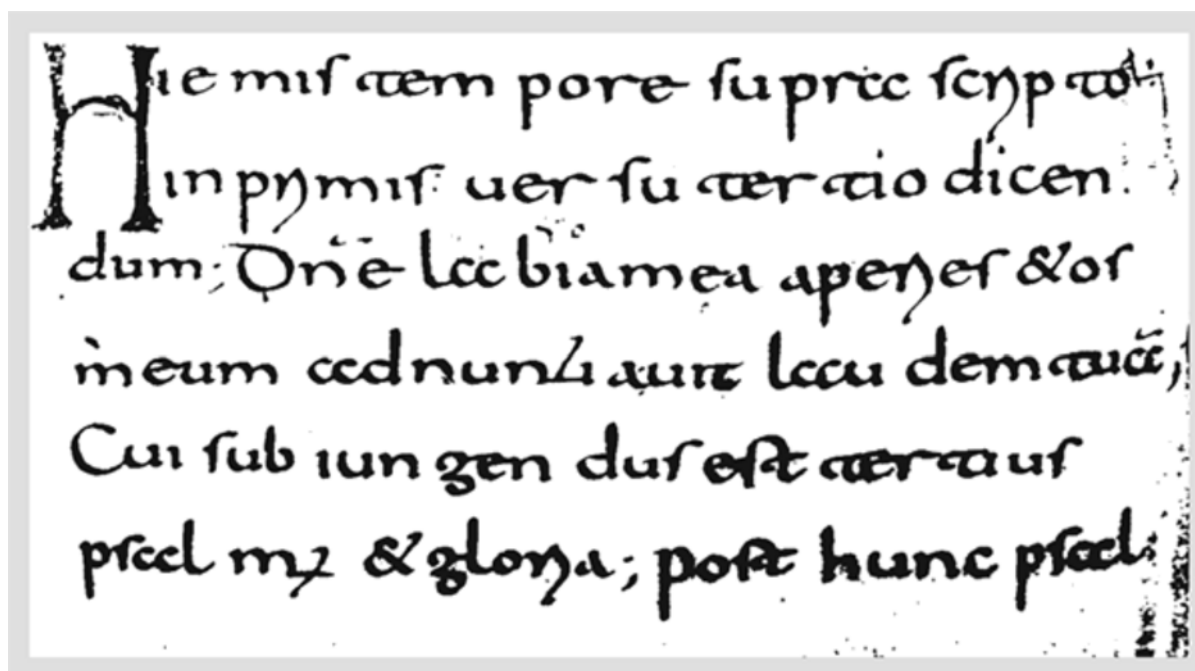 Hiemis tempore supra scripto
in primis uersu tertio dicen
dum; Dñe labia mea aperies & os
meum adnuntiauit laudem tuā;
Cui subiungendus est tertius
psalmꝰ & gloria; post hunc psal